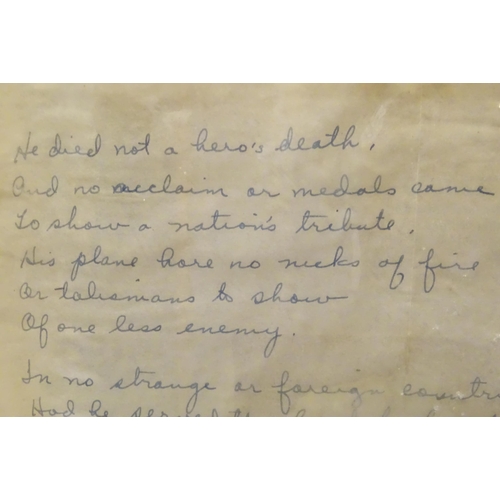 He died not a hero's death,
And no acclaim or medals came
To show a nation's tribute.
His plane bore no nicks of fire
Or talismans to show
Of one less enemy.
In no strange or foreign countr
Had he served